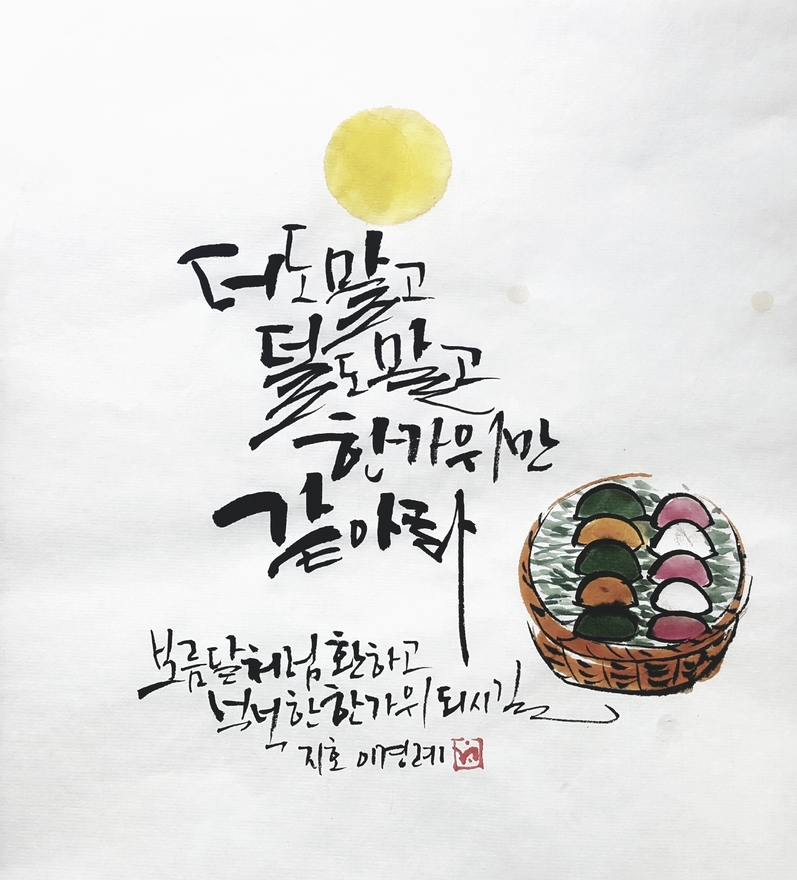 더도말고
덜도말고
한가위만
같아라
보름달처럼 환하고
넉넉한 한가위 되시길
지호 이경례